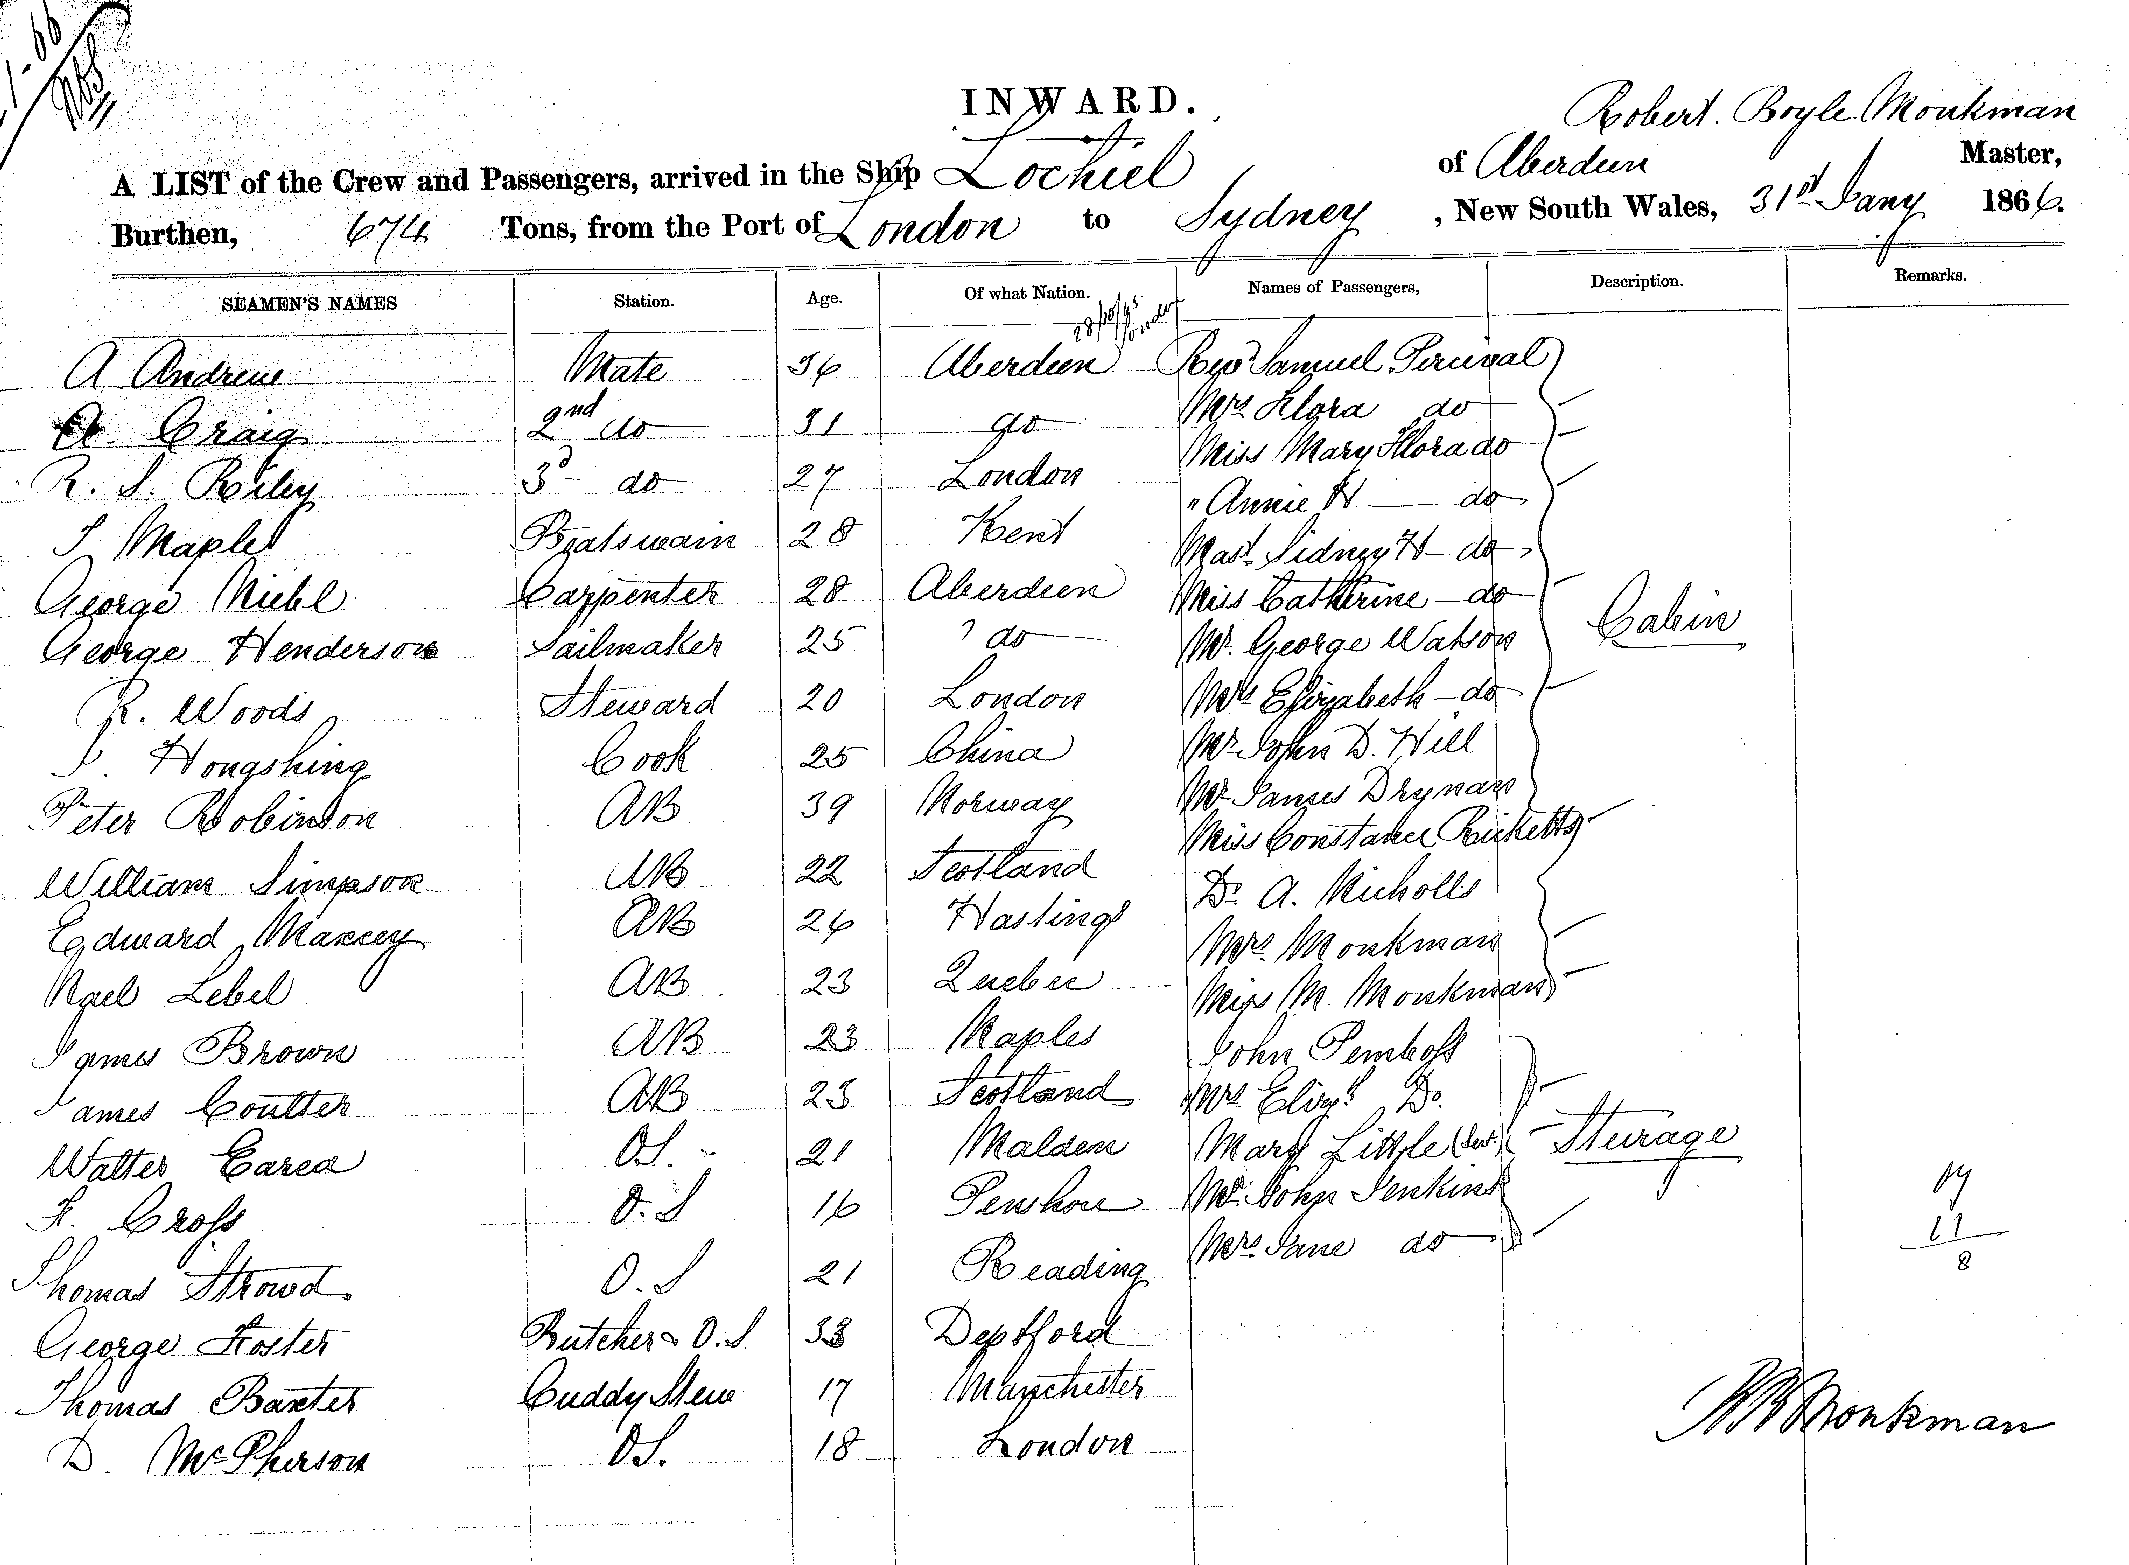 INWARD.
Robert. Boyle. Monkman
A LIST of the Crew and Passengers, arrived in the Ship Lochiel of Aberdeen Master,
Burthen, 674 Tons, from the Port of London to Sydney , New South Wales, 31st Jany 1866.
SEAMEN'S NAMES Station. Age. Of what Nation. Names of Passengers, Description. Remarks.
A Andrew Mate 36 Aberdeen Revd Samuel Percival
A. Craig 2nd do 31 do Mrs Flora do
R. S. Riley 3d do 27 London Miss Mary Flora do
" Annie H — do
Maples Boatswain 28 Kent Mast. Sidney H — do
George Carpenter 28 Aberdeen Miss Catherine — do
Cabin
George Henderson Sailmaker 25 do Mr. George Watson
R. Woods Steward 20 London Mrs Elizabeth — do
Hongshing Cook 25 China Mr John D. Hill
Peter Robinson AB 39 Norway Mr James Drynan
Miss Constance Ricketts
William Simpson AB 22 Scotland Dr A. Nicholls
Edward Maxcey AB 26 Hastings Mrs Monkman
Nael Lebel AB 23 Quebec Miss M. Monkman
James Brown AB 23 Naples John
James Coulter AB 23 Scotland Mrs Elizh Do.
Walter Earea O.S. 21 Malden Mary Little Sturage
F. Cross O.S 16 Penshou Mr. John Jenkins
Mrs Jane do
Thomas Strowd. O.S 21 Reading
11
8
George Foster Butcher & O.S 33 Deptford
Thomas Baxter Cuddy Stew 17 Manchester
R B Monkman
D. McPherson O.S. 18 London